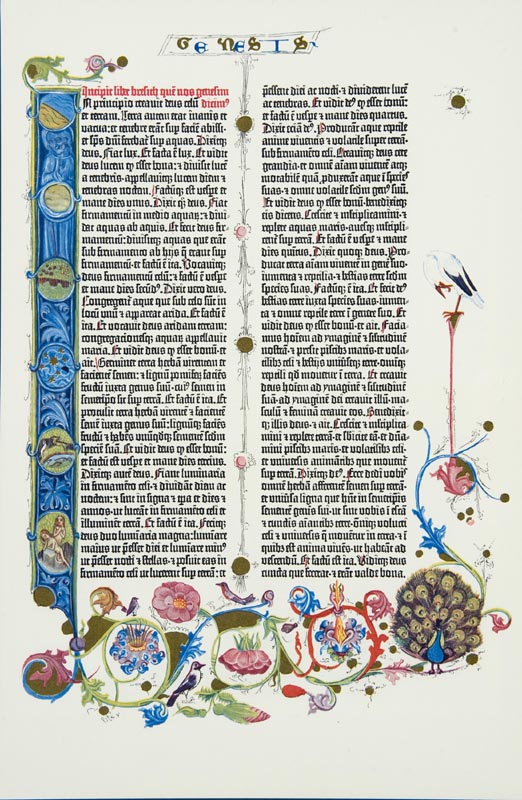 GENESIS
Incipit liber bresith quē nos genesim
In principio creauit deus celū dicimꝰ
et terram. Terra autem erat inanis et
vacua: et tenebre erāt sup faciē abissi:
et spūs dn̄i ferebat̄ sup aquas. Dixitq;
deus. Fiat lux. Et facta ē lux. Et vidit
deus lucem ꝙ esset bona: et diuisit lucē
a tenebris. appellauitq; lucem diem et
tenebras noctem. Factūq; est vespe et
mane dies vnus. Dixit q; deus. Fiat
firmamentū in medio aquaꝝ: et diui-
dat aquas ab aquis. Et fecit deus fir-
mamentū: diuisitq; aquas que erāt
sub firmamento ab hijs q̄ erant sup
firmamentū: et factū ē ita. Vocauitq;
deus firmamentū celū: et factū ē vespe
et mane dies secūdꝰ. Dixit vero deus.
Congregent̄ aque que sub celo sūt in
locū vnū et appareat arida. Et factū ē
ita. Et vocauit deus aridam terram:
congregacionesq; aquaꝝ appellauit
maria. Et vidit deus ꝙ esset bonū. et
ait. Germinet terra herbā virentem et
facientē semen: et lignū pomiferū faciēs
fructū iuxta genus suū. cuiꝰ semen in
semetipo sit sup terrā. Et factū ē ita. Et
protulit terra herbā virentē et facientē
semē iuxta genus suū: lignūq; faciēs
fructū et habēs vnūqdq; sementē scdm
speciē suā. Et vidit deus ꝙ esset bonū:
et factū est vespe et mane dies tercius.
Dixitq; autē deus. Fiant luminaria
in firmamēto celi. et diuidāt diem ac
noctem: et sint in signa et tpa et dies et
annos. ut luceāt in firmamēto celi et
illuminēt terrā. Et factū ē ita. Fecitq;
deus duo lumīaria magna: lumīare
maius ut pesset diei et lumīare minꝰ
ut pesset nocti et stellas. et posuit eas in
firmamēto celi ut lucerent sup terrā: et
pessent diei ac nocti. et diuiderent lucē
ac tenebras. Et vidit deꝰ ꝙ esset bonū:
et factū ē vespe et mane dies quartus.
Dixit eciā deꝰ. Producāt aque reptile
anime viuentis et volatile sup terrā:
sub firmamēto celi. Creauitq; deus cete
grandia. et omnē aīam viuentē atq;
motabilē quā pduxerāt aque ī species
suas. et omne volatile scdm genꝰ suū.
Et vidit deus ꝙ esset bonū. benedixitq;
eis dicens. Crescite et mltiplicamini. et
replete aquas maris. auesq; mltipli-
cent̄ sup terrā. Et factū ē vespe et mane
dies quītus. Dixit quoq; deus. Pro-
ducat terra aīam viuentē in genē suo.
iumenta et reptilia. et bestias terre scdm
species suas. Factūq; ē ita. Et fecit deꝰ
bestias terre iuxta species suas. iumen-
ta et omne reptile terre ī genere suo. Et
vidit deus ꝙ esset bonū. et ait. Facia-
mus hoīem ad ymaginē et silitudinē
nostrā. et presit piscibs maris. et vola-
tilibs celi et bestijs vniūseq; terre. omīq;
reptili qd mouetur in terra. Et creauit
deus hoīem ad ymaginē et silitudinē
suā. ad ymaginē dei creauit illū. ma-
sculū et feminā creauit eos. Benedixit-
q; illis deus. et ait. Crescite et mltiplica-
mini et replete terrā. et sbicite eā. et dn̄a-
mini piscibs maris. et volatilibs celi.
et vniuersis animātibs que mouent̄
sup terrā. Dixitq; deꝰ. Ecce dedi vobis
omnē herbā afferentē semen sup terrā.
et vniūsa ligna que hn̄t in semetipis
sementē genēis sui. ut sint vobis ī escā
et cunctis aīantibs terre. omīq; volucri
celi et vniuersis q̄ mouent̄ in terrā. et ī
quibs est anima viuēs. ut habeāt ad
vescendū. Et factū est ita. Viditq; deus
cuncta que fecerat. et erāt valde bona.